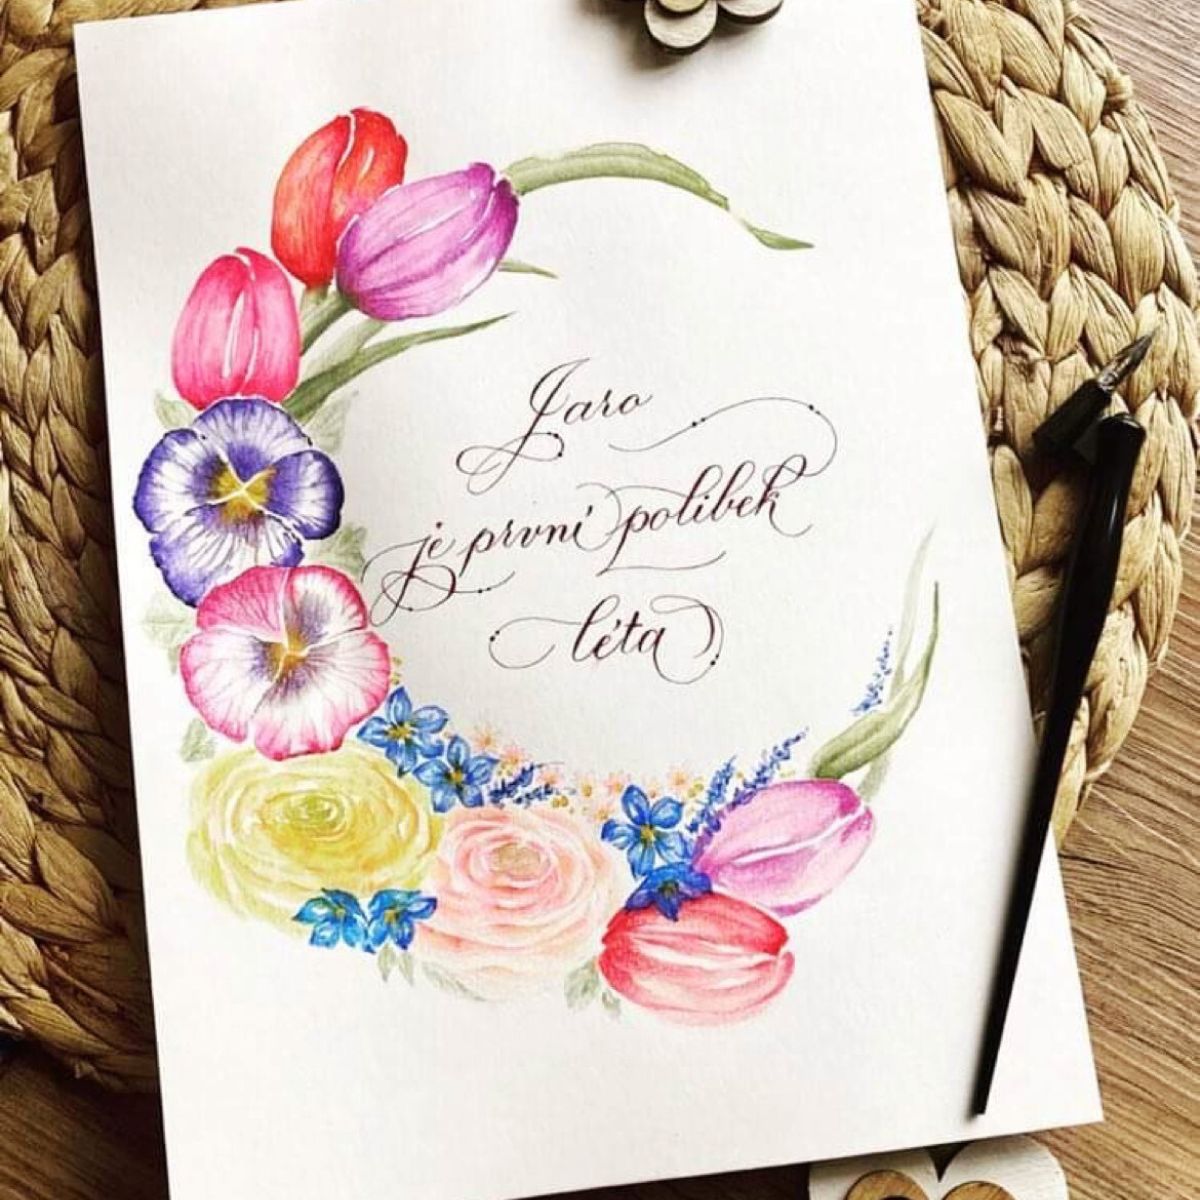 Jaro
je první polibek
léta